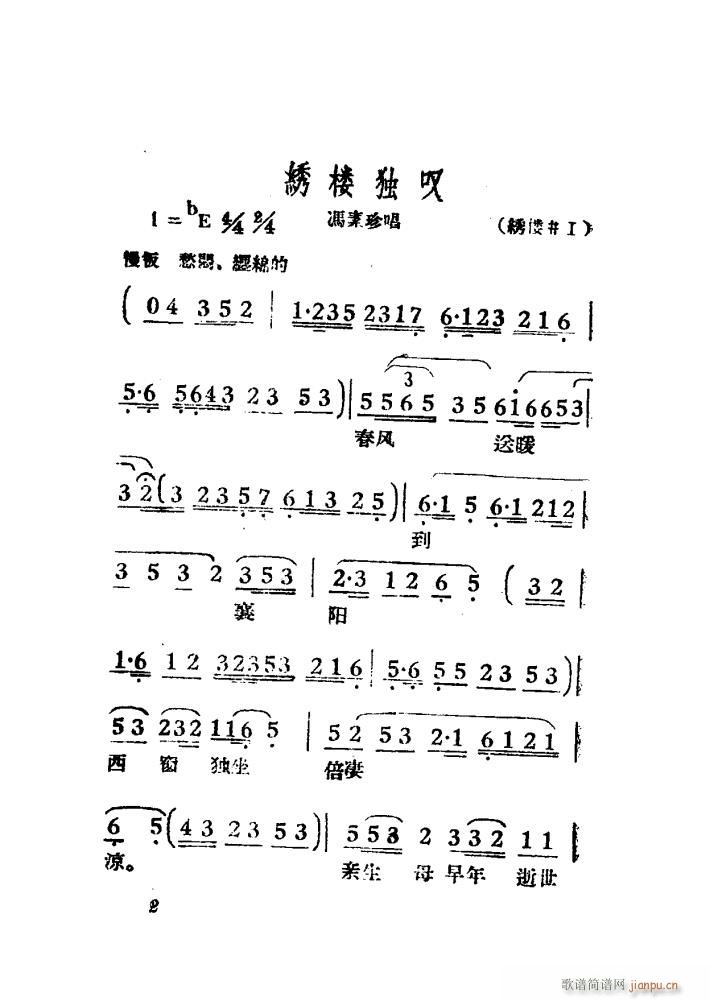 绣楼独叹
1=bE 4/4 2/4 馮素珍唱 (綉楼#1)
慢板 愁悶、纒綿的
(04 352 | 1·235 2317 6·123 216 |
5·6 5643 23 53)| 5565 35 616653 |
3
春风 送暖
32(3 2357 613 25)| 6·1 5 6·1 212 |
到
3 5 3 2 353 | 2·3 12 6 5 (32 |
襄 阳
1·6 12 32353 216 | 5·6 55 23 53)|
53 232 116 5 | 52 53 2·1 6121 |
西 窗 独坐 倍凄
6 5(43 23 53)| 553 2 332 11 |
凉。 亲生 母早年 逝世
2
歌谱简谱网 jianpu.cn